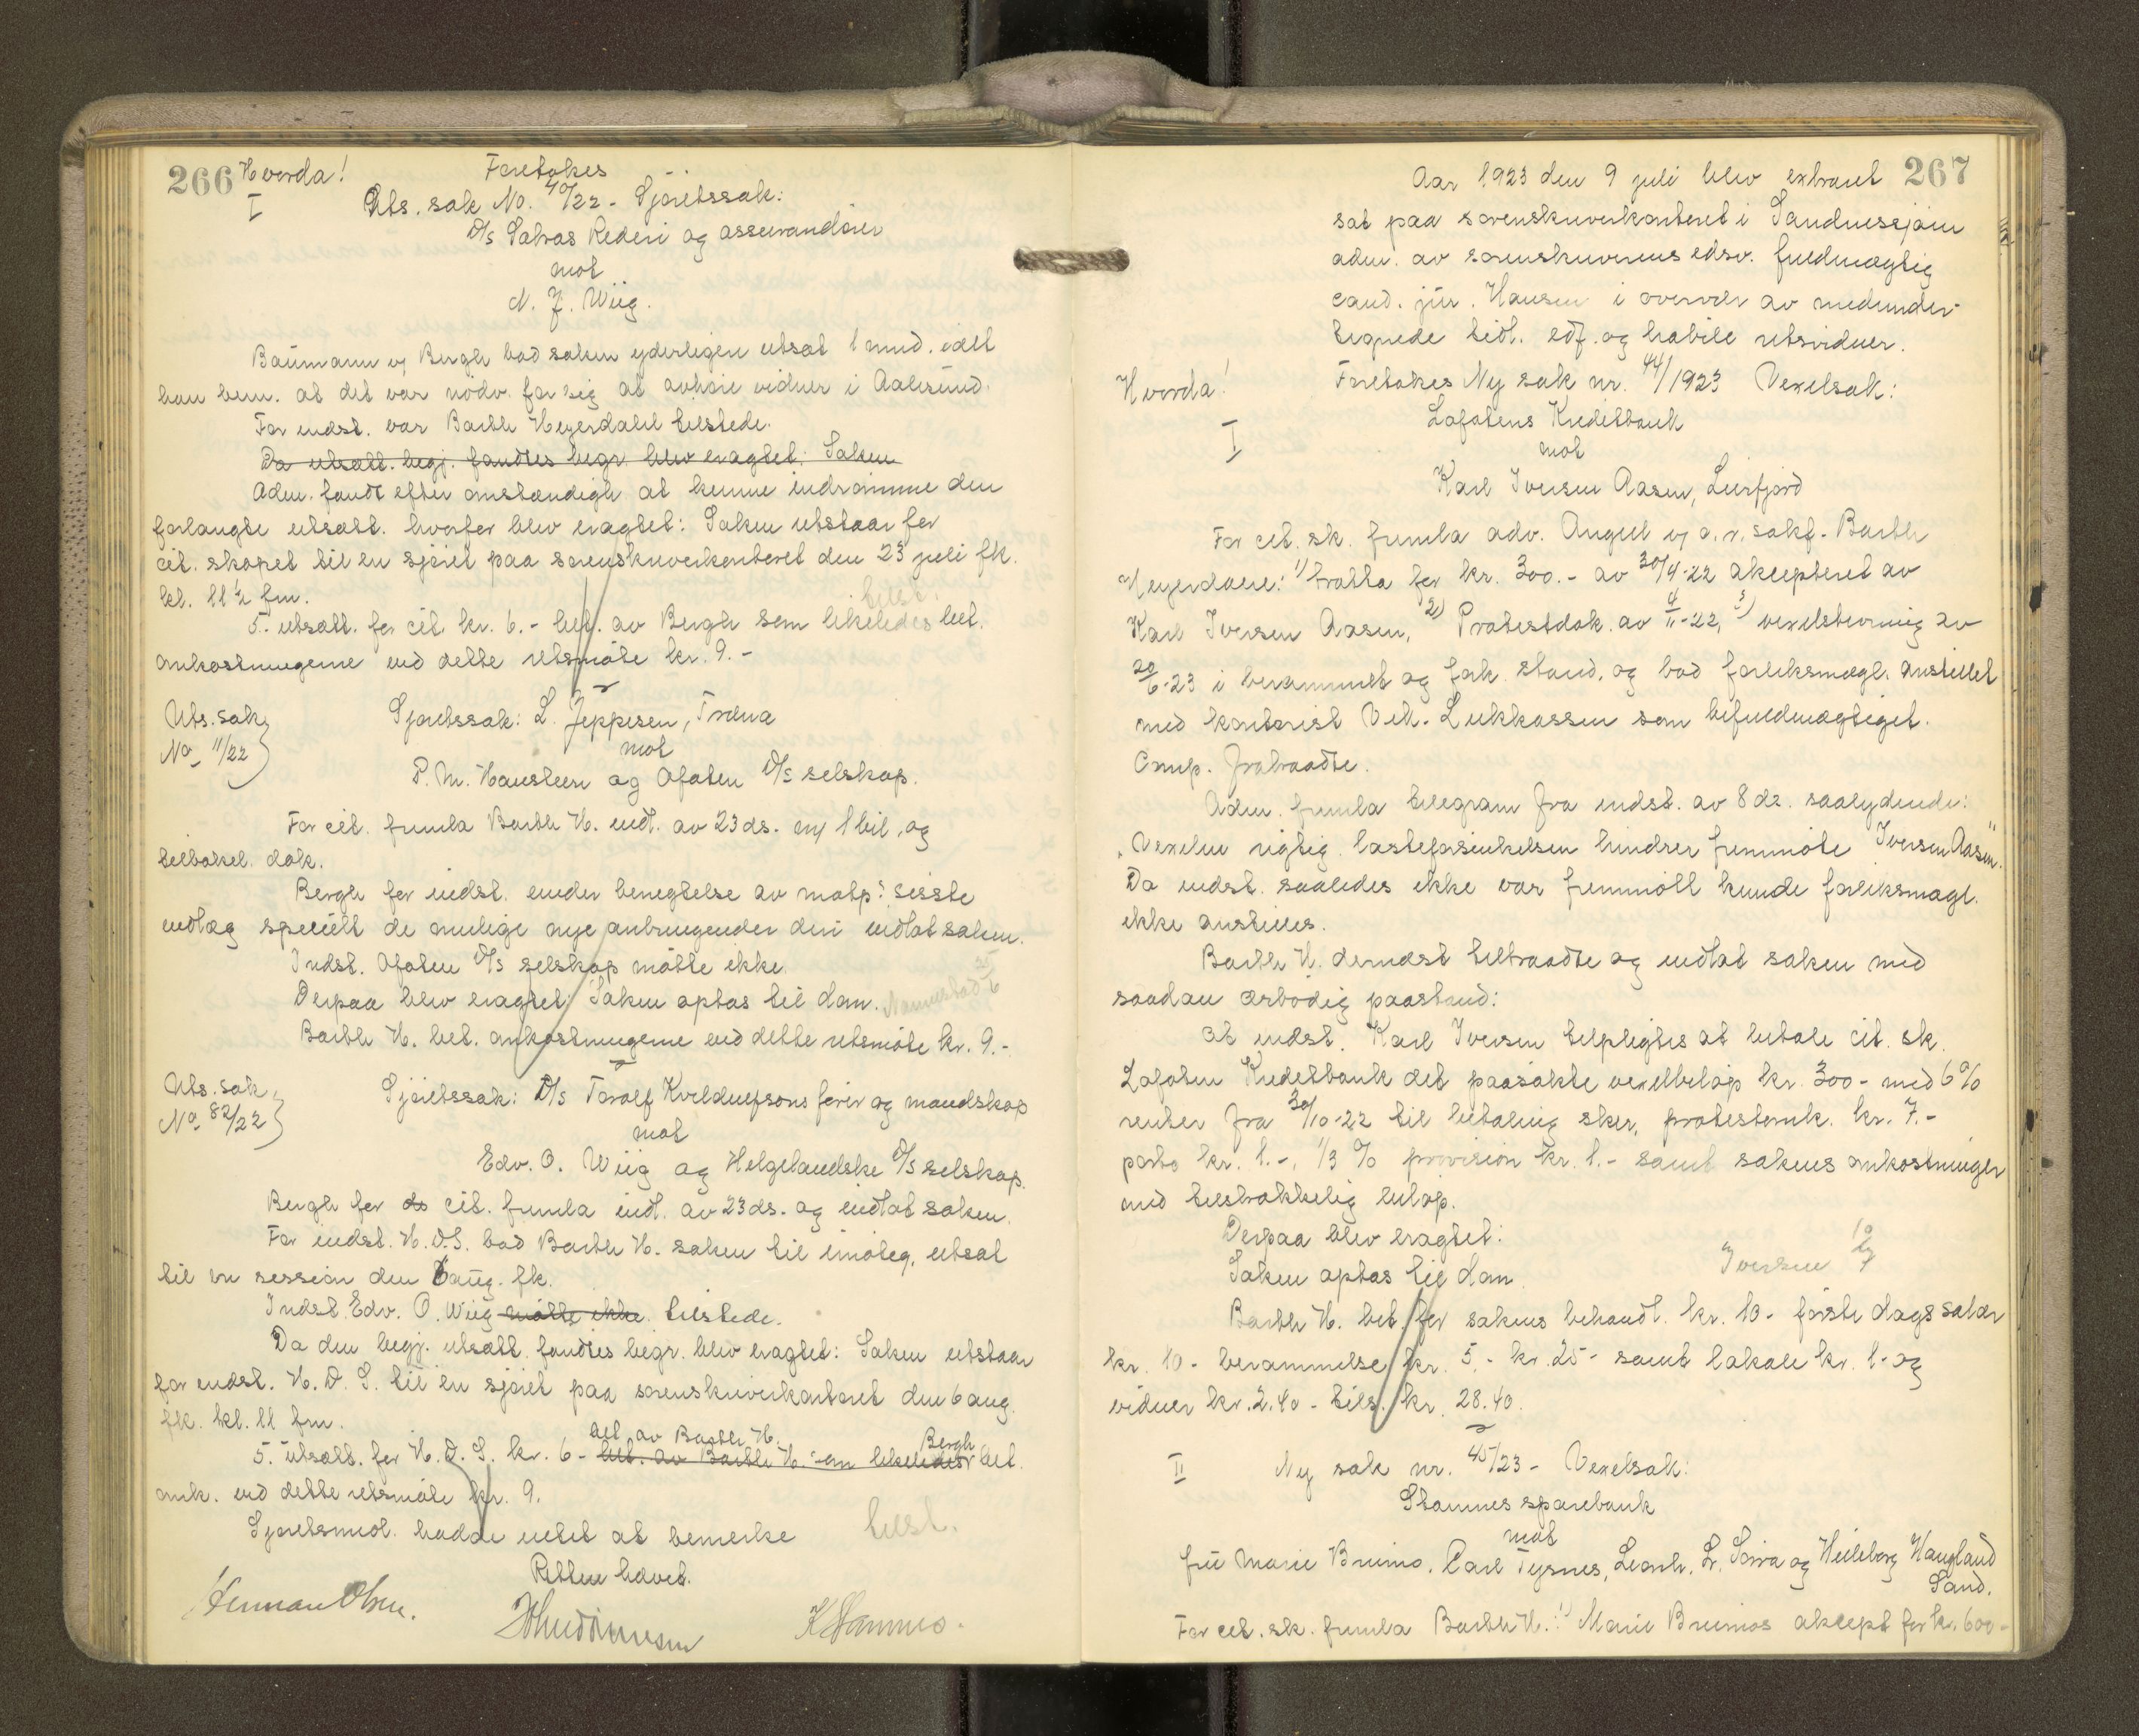 266 Hvorda! Foretokes
I Uts. sak No. 40/22 - Sjöretssak:
D/s Salvas Rederi og assurandører
mot
N. J. Wiig.
Baumann v/ Bergh bad saken yderligere utsat 1 mnd. idet
han bem. at det var nödv. for sig at avhøre vidner i Aalesund.
For indst. var Barth Heyerdahl tilstede.
Da utsætt. begj. fandtes begr. blev eragtet: Saken
Adm. fandt efter omstændigh. at kunne indrömme den
forlangte utsætt. hvorfor blev eragtet: Saken utstaar for
cit. skapet til en sjöret paa sorenskriverkontoret den 23 juli fk.
kl. 11 ½ fm.
tilst.
5. utsætt. for cit. kr. 6.- bet. av Bergh som likeledes bet.
omkostningerne ved dette retsmöte kr. 9.-
Uts. sak Sjöretssak: L. Jeppesen, Træna
No. 11/22 mot
P. M. Hansteen og Ofoten D/s selskap.
For cit. fremla Barth H. indl. av 23 ds. m/ 1 bil. og
tilbakel. dok.
Bergh for indst. under benegtelse av motp.s sisste
indlæg specielt de mulige nye anbringender deri indlot saken.
Indst. Ofoten D/s selskap mötte ikke.
Derpaa blev eragtet: Saken optas til dom. 25/6
Barth H. bet. omkostningerne ved dette retsmöte kr. 9.-
Uts. sak Sjöretssak: D/s Torolf Kveldulfsons förer og mandskap
No. 82/22 mot
Edv. O. Wiig og Helgelandske D/s selskap.
Bergh for ds cit. fremla indl. av 23 ds. og indlot saken.
For indst. H.D.S. bad Barth H. saken til imöteg. utsat
til en session den 6 aug. fk.
Indst. Edv. O. Wiig mötte ikke. tilstede.
Da den begj. utsætt. fandtes begr. blev eragtet: Saken utstaar
for indst. H. D. S. til en sjöret paa sorenskriverkontoret den 6 aug.
fk. kl. 11 fm.
bet av Barth H. Bergh
5. utsætt. for H. D. S. kr. 6 - bet. av Barth H. som likeledes bet.
omk. ved dette retsmöte kr. 9.
Sjöretsmedl. hadde intet at bemerke tilst.
Retten hævet.
Herman Olsen. K Hamnes.
Aar 1923 den 9 juli blev extraret 267
sat paa sorenskriverkontoret i Sandnessjöen
adm. av sorenskriverens edsv. fuldmægtig
cand. jur. Hansen i overvær av medunder-
tegnede tidl. edf. og habile retsvidner.
Hvorda! Foretokes Ny sak nr. 44/1923 Vexelsak:
I Lofotens Kreditbank
mot
Karl Iversen Aasen, Leirfjord
For cit. sk. fremla adv. Angell v/ o.r. sakf. Barth
Heyerdahl: 1) tratta for kr. 300.- av 30/4-22 akcepteret av
Karl Iversen Aasen, 2) Protestdok. av 4/11-22, 3) vexelstevning av
20/6-23 i berammet og fork. stand, og bad forliksmægl. anstillet
med kontorist Vilh. Lukkassen som befuldmægtiget.
Comp. fratraadte.
Adm. fremla telegram fra indst. av 8 ds. saalydende:
"Vexelen rigtig lasteforsinkelsen hindrer fremmöte Iversen Aasen".
Da indst. saaledes ikke var fremmött kunde forliksmægl.
ikke anstilles.
Barth H. dernæst tiltraadte og indlot saken med
saadan ærbödig paastand:
At indst. Karl Iversen tilpligtes at betale cit. sk.
Lofoten Kreditbank det paasökte vexelbelöp kr. 300 - med 6 %
renter fra 30/10-22 til betaling sker, protestomk. kr. 7.-
porto kr. 1.-, 1/3 % provision kr. 1.- samt sakens omkostninger
med tilstrækkelig belöp.
Derpaa blev eragtet:
Saken optas til dom Iversen 10/7
Barth H. bet. for sakens behandl. kr. 10 - förste dags salær
kr. 10 - berammelse kr. 5,- kr. 25 - samt lokale kr. 1- og
vidner kr. 2.40 - tils. kr. 28.40.
II Ny sak nr. 45/23 - Vexelsak:
Stamnes sparebank
mot
fru Marie Brunos, Carl Tysnes, Leonh. L. Sörra og Heileborg Haugland
Sand.
For cit. sk. fremla Barth H.: 1) Marie Brunos akcept for kr. 600-